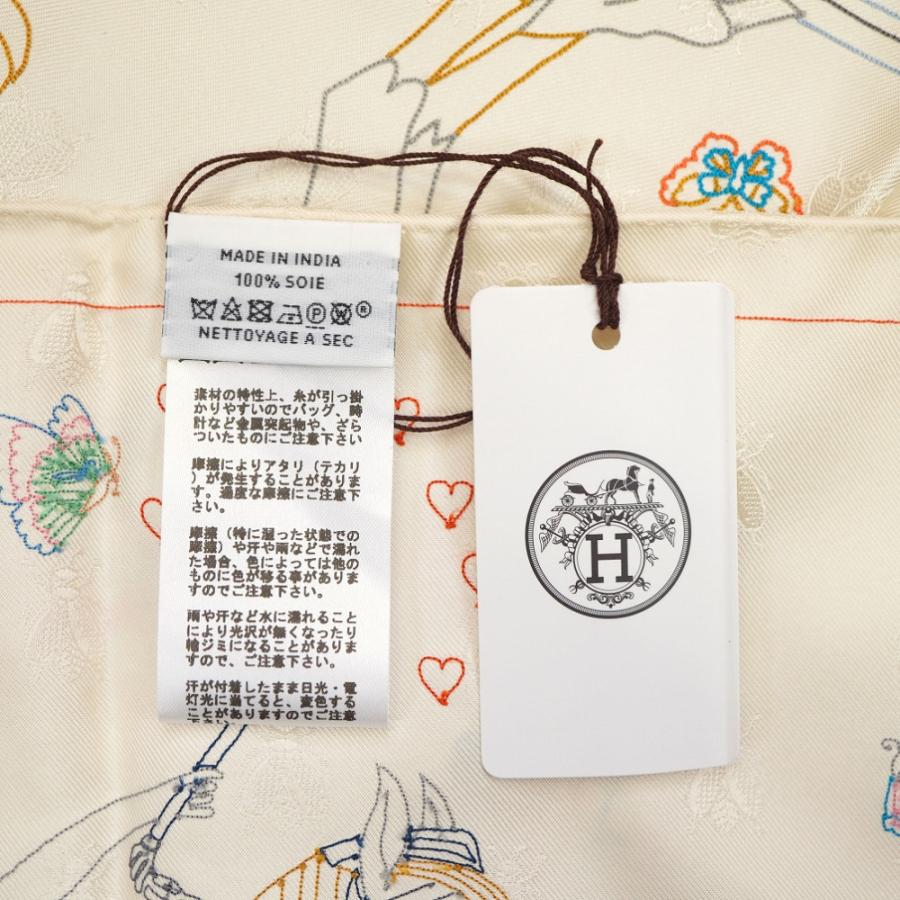 MADE IN INDIA
100% SOIE
P W R
NETTOYAGE A SEC
素材の特性上、糸が引っ掛
かりやすいのでバッグ、時
計など金属突起物や、ざら
ついたものにご注意下さい
摩擦によりアタリ（テカリ
）が発生することがありま
す。過度な摩擦にご注意下
さい。
摩擦（特に湿った状態での
摩擦）や汗や雨などで濡れ
た場合、色によっては他の
ものに色が移る事がありま
すのでご注意下さい。
雨や汗など水に濡れること
により光沢が無くなったり
輪ジミになることがありま
すので、ご注意下さい。
汗が付着したまま日光・電
灯光に当てると、変色する
ことがありますのでご注意
下さい
H